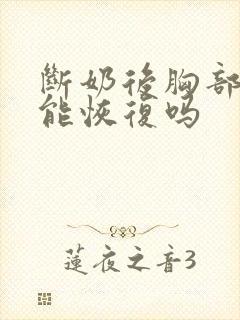 斷奶後胸部
能恢復吗
蓮夜之音3